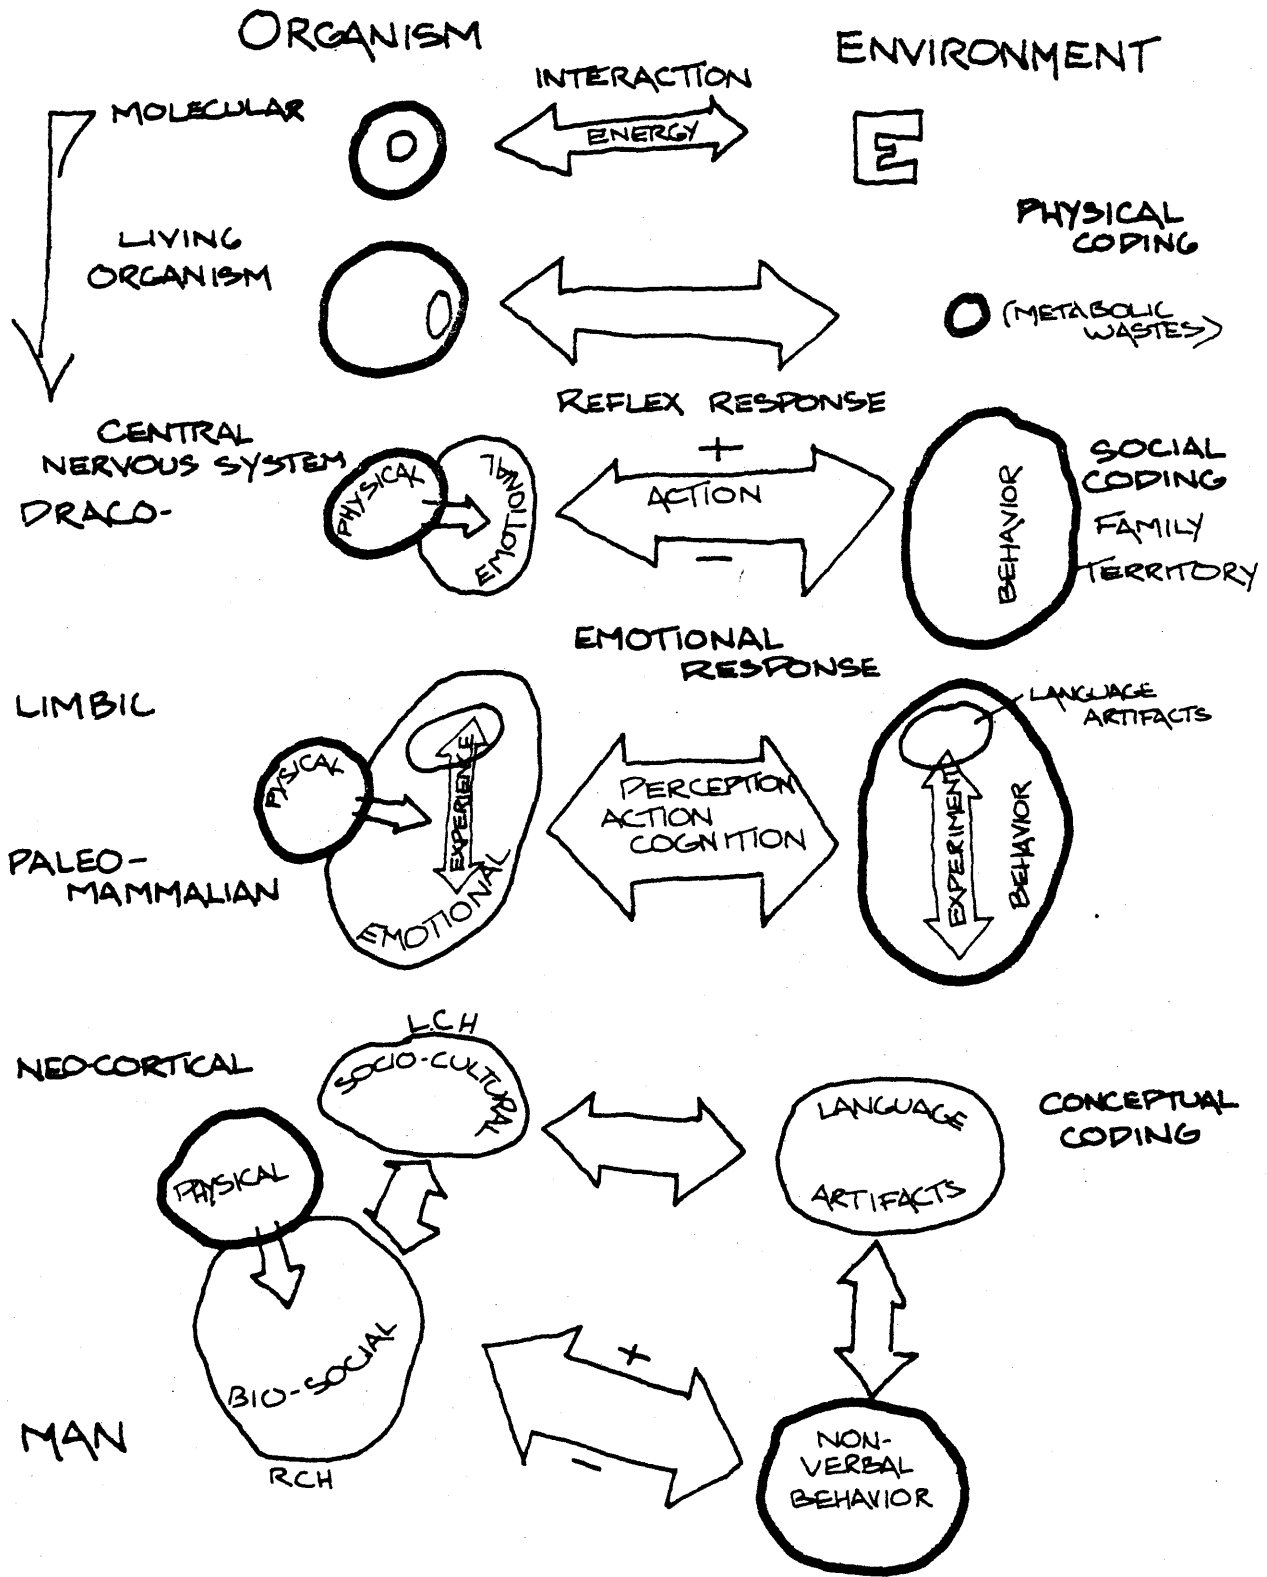 ORGANISM
ENVIRONMENT
INTERACTION
MOLECULAR
ENERGY
E
PHYSICAL
CODING
LIVING
ORGANISM
(METABOLIC
WASTES)
REFLEX RESPONSE
CENTRAL
NERVOUS SYSTEM
DRACO-
PHYSICAL
EMOTIONAL
+
ACTION
-
BEHAVIOR
SOCIAL
CODING
FAMILY
TERRITORY
EMOTIONAL
RESPONSE
LIMBIC
PALEO-
MAMMALIAN
PYSICAL
EXPERIENCE
EMOTIONAL
PERCEPTION
ACTION
COGNITION
LANGUAGE
ARTIFACTS
EXPERIMENT
BEHAVIOR
NEO-CORTICAL
L.C.H
SOCIO-CULTURAL
PHYSICAL
LANGUAGE
ARTIFACTS
CONCEPTUAL
CODING
BIO-SOCIAL
+
-
MAN
RCH
NON-
VERBAL
BEHAVIOR